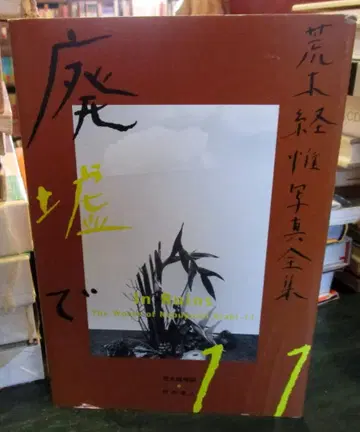 荒木経惟写真全集
11
廃墟で
In Ruins
The Works of Nobuyoshi Araki-11